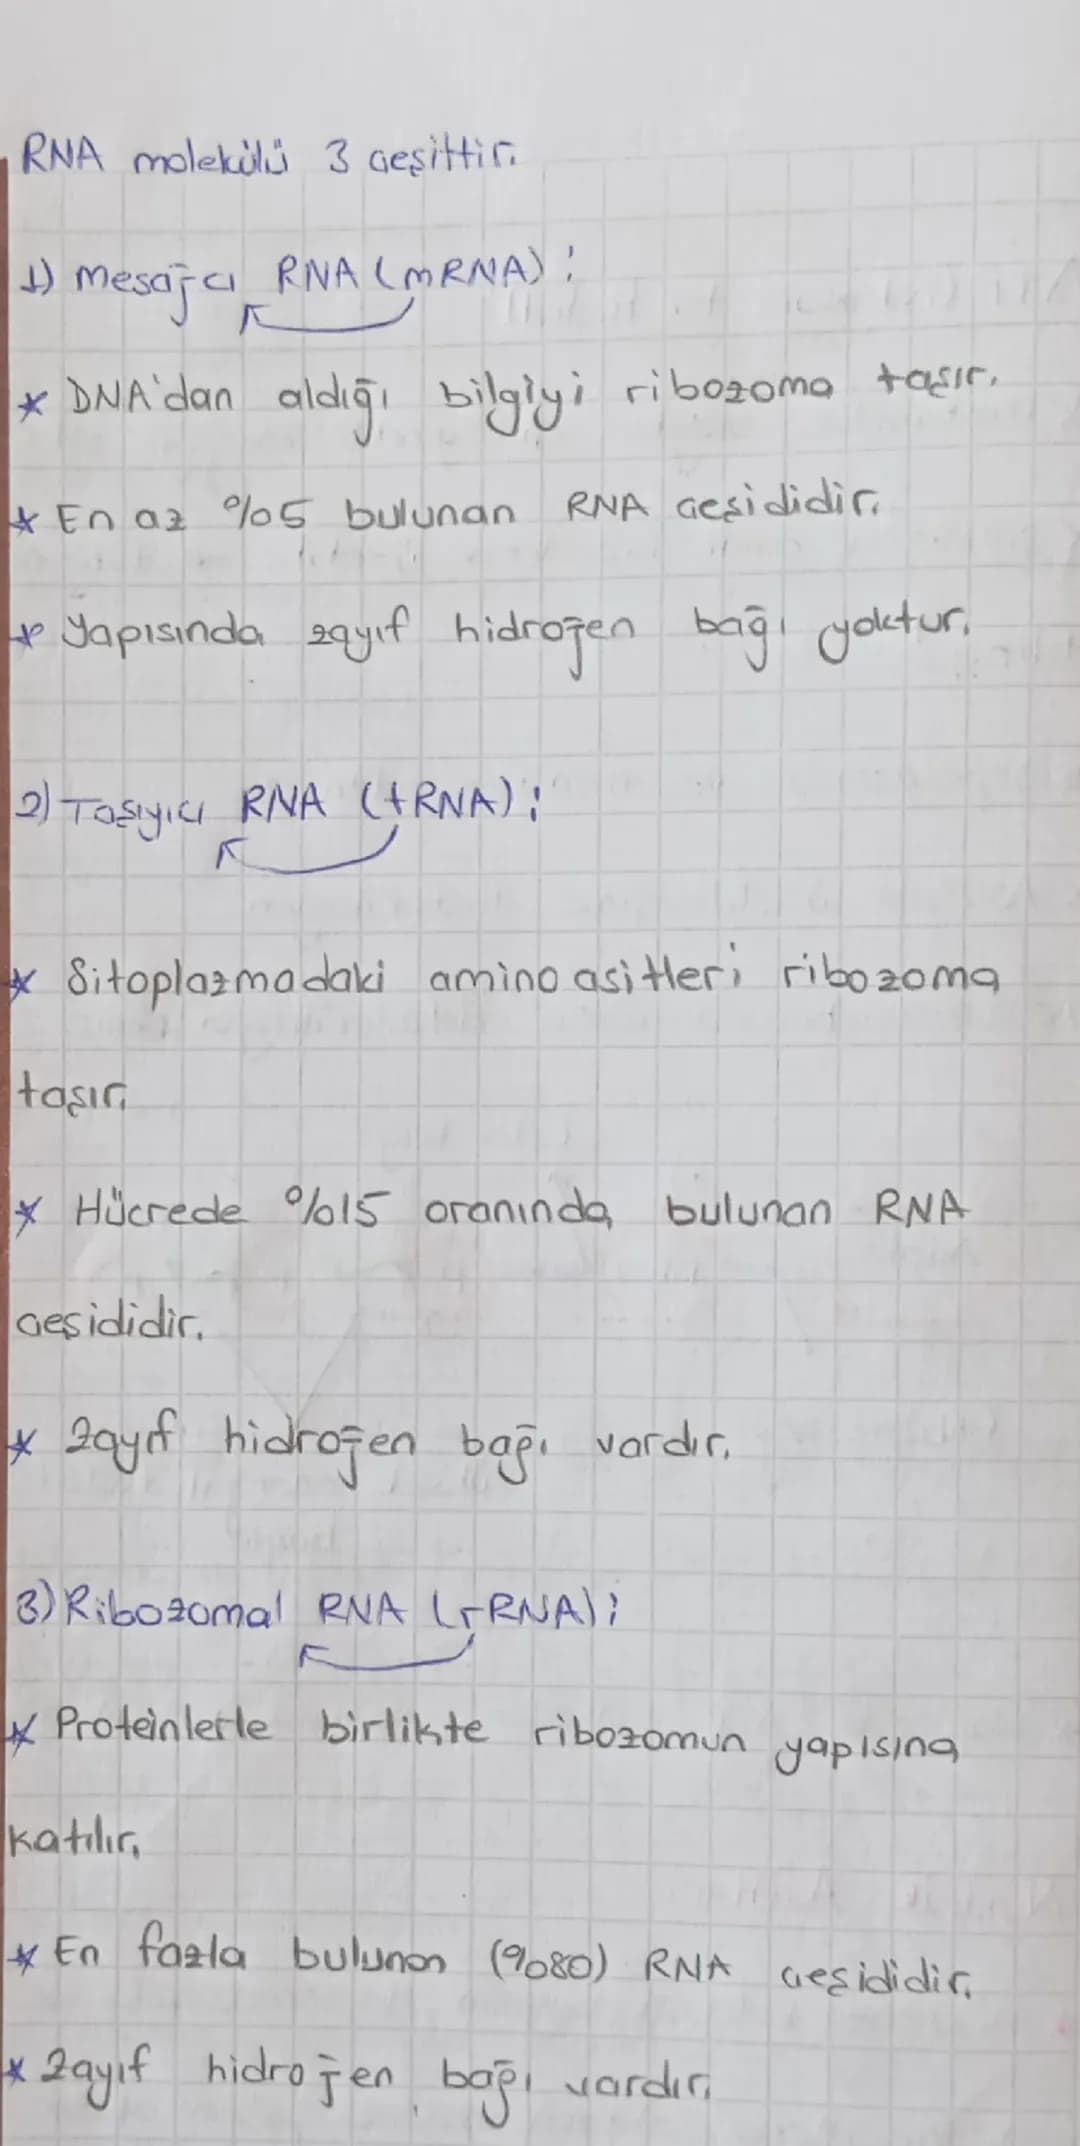 RNA molekülü 3 çeşittir.
1) Mesajcı RNA (mRNA):
* DNA'dan aldığı bilgiyi ribozoma taşır.
* En az %5 bulunan RNA çeşididir.
* Yapısında zayıf hidrojen bağı yoktur.
2) Taşıyıcı RNA (tRNA):
* Sitoplazmadaki amino asitleri ribozoma
taşır.
* Hücrede %15 oranında bulunan RNA
çeşididir.
* Zayıf hidrojen bağı vardır.
3) Ribozomal RNA (rRNA):
* Proteinlerle birlikte ribozomun yapısına
katılır.
* En fazla bulunan (%80) RNA çeşididir.
* Zayıf hidrojen bağı vardır.